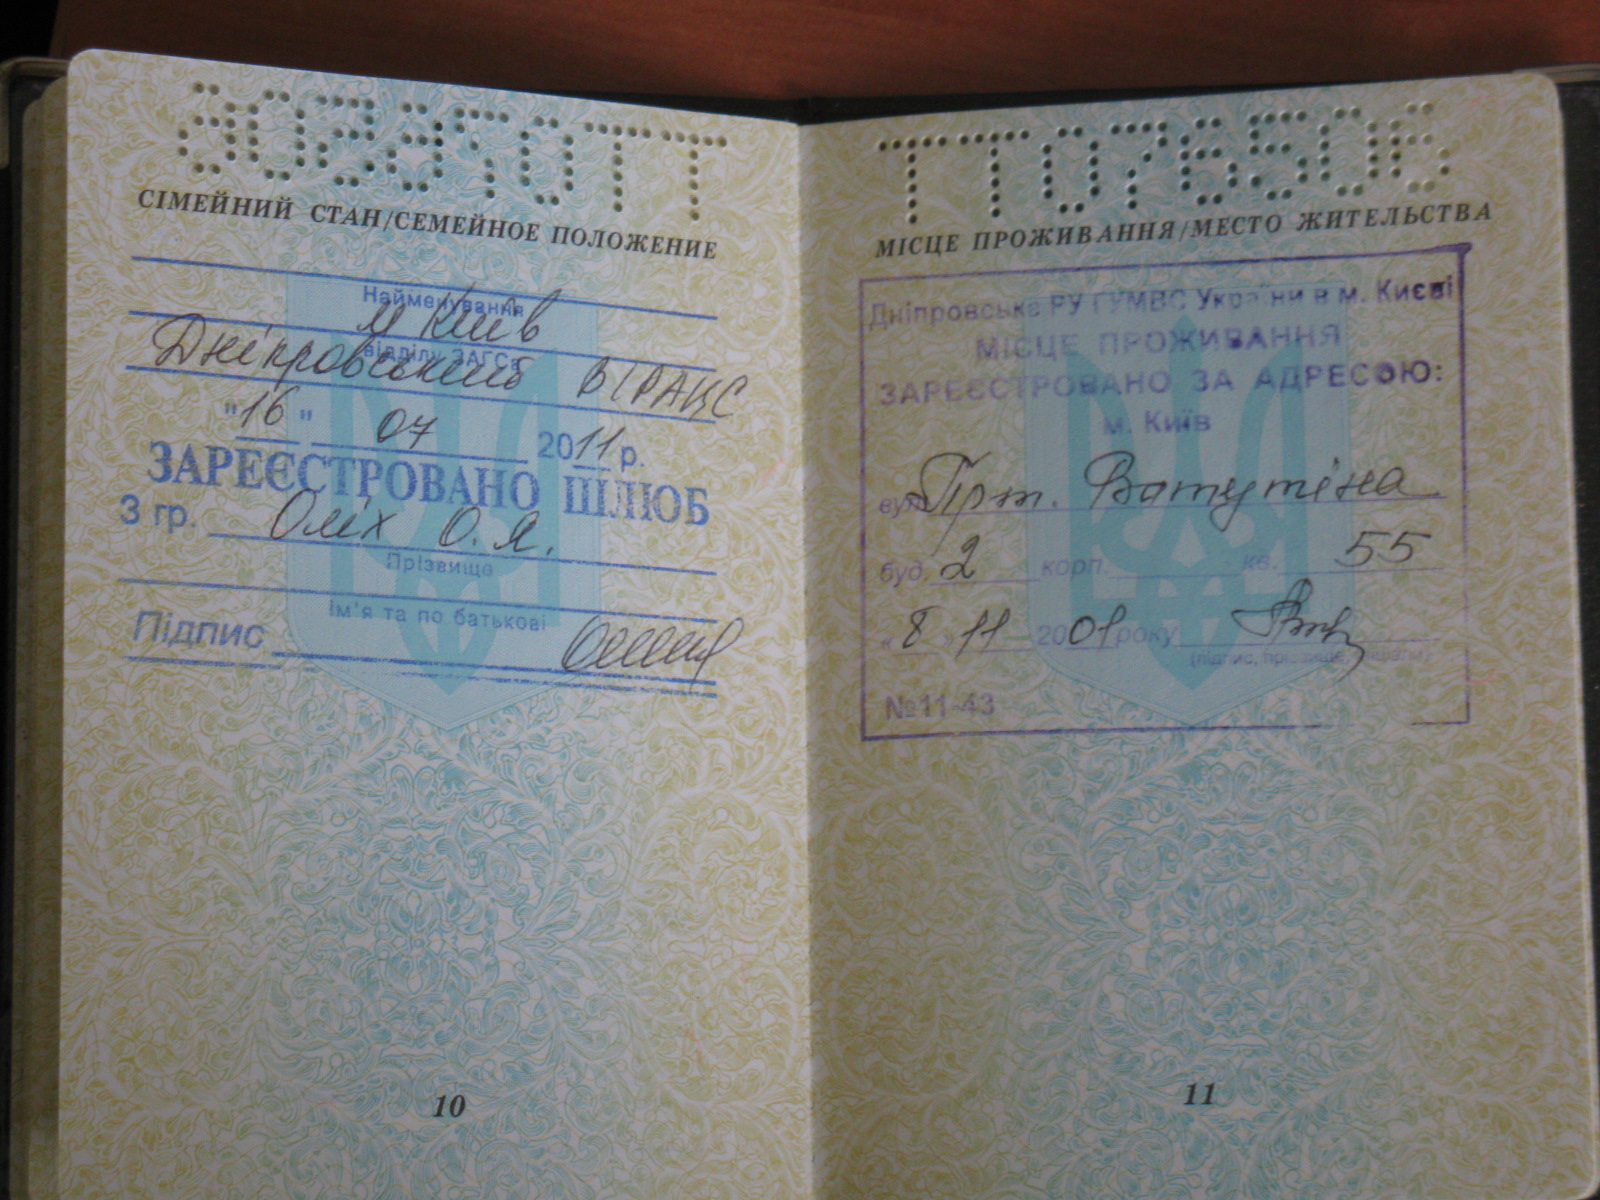 СІМЕЙНИЙ СТАН/СЕМЕЙНОЕ ПОЛОЖЕНИЕ
Найменування
м Київ
відділу ЗАГСа
Дніпровський ВІРАЦС
"16" 07 2011 р.
ЗАРЕЄСТРОВАНО ШЛЮБ
З гр. Оліх О. Я.
Прізвище
Ім'я та по батькові
Підпис
10
ТТ076506
МІСЦЕ ПРОЖИВАННЯ/МЕСТО ЖИТЕЛЬСТВА
Дніпровське РУ ГУМВС України в м. Києві
МІСЦЕ ПРОЖИВАННЯ
ЗАРЕЄСТРОВАНО ЗА АДРЕСОЮ:
м. Київ
вул. Прт. Ватутіна
буд. 2 корп. кв. 55
« 8 » 11 2001 року
(підпис, прізвище, ініціали)
№11-43
11